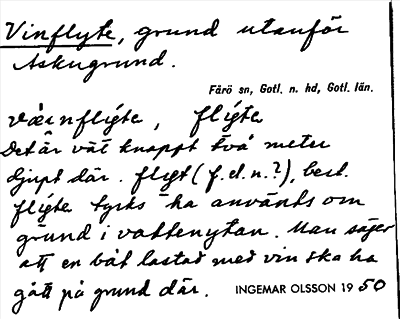 Vinflyte, grund utanför
Askugrund.
Fårö sn, Gotl. n. hd, Gotl. län.
flýte
Det är väl knappt två meter
djupt där. flyt (f.d.n.?), best.
flýte tycks ha använts om
grund i vattenytan. Man säger
att en båt lastad med vin ska ha
gått på grund där. INGEMAR OLSSON 1950